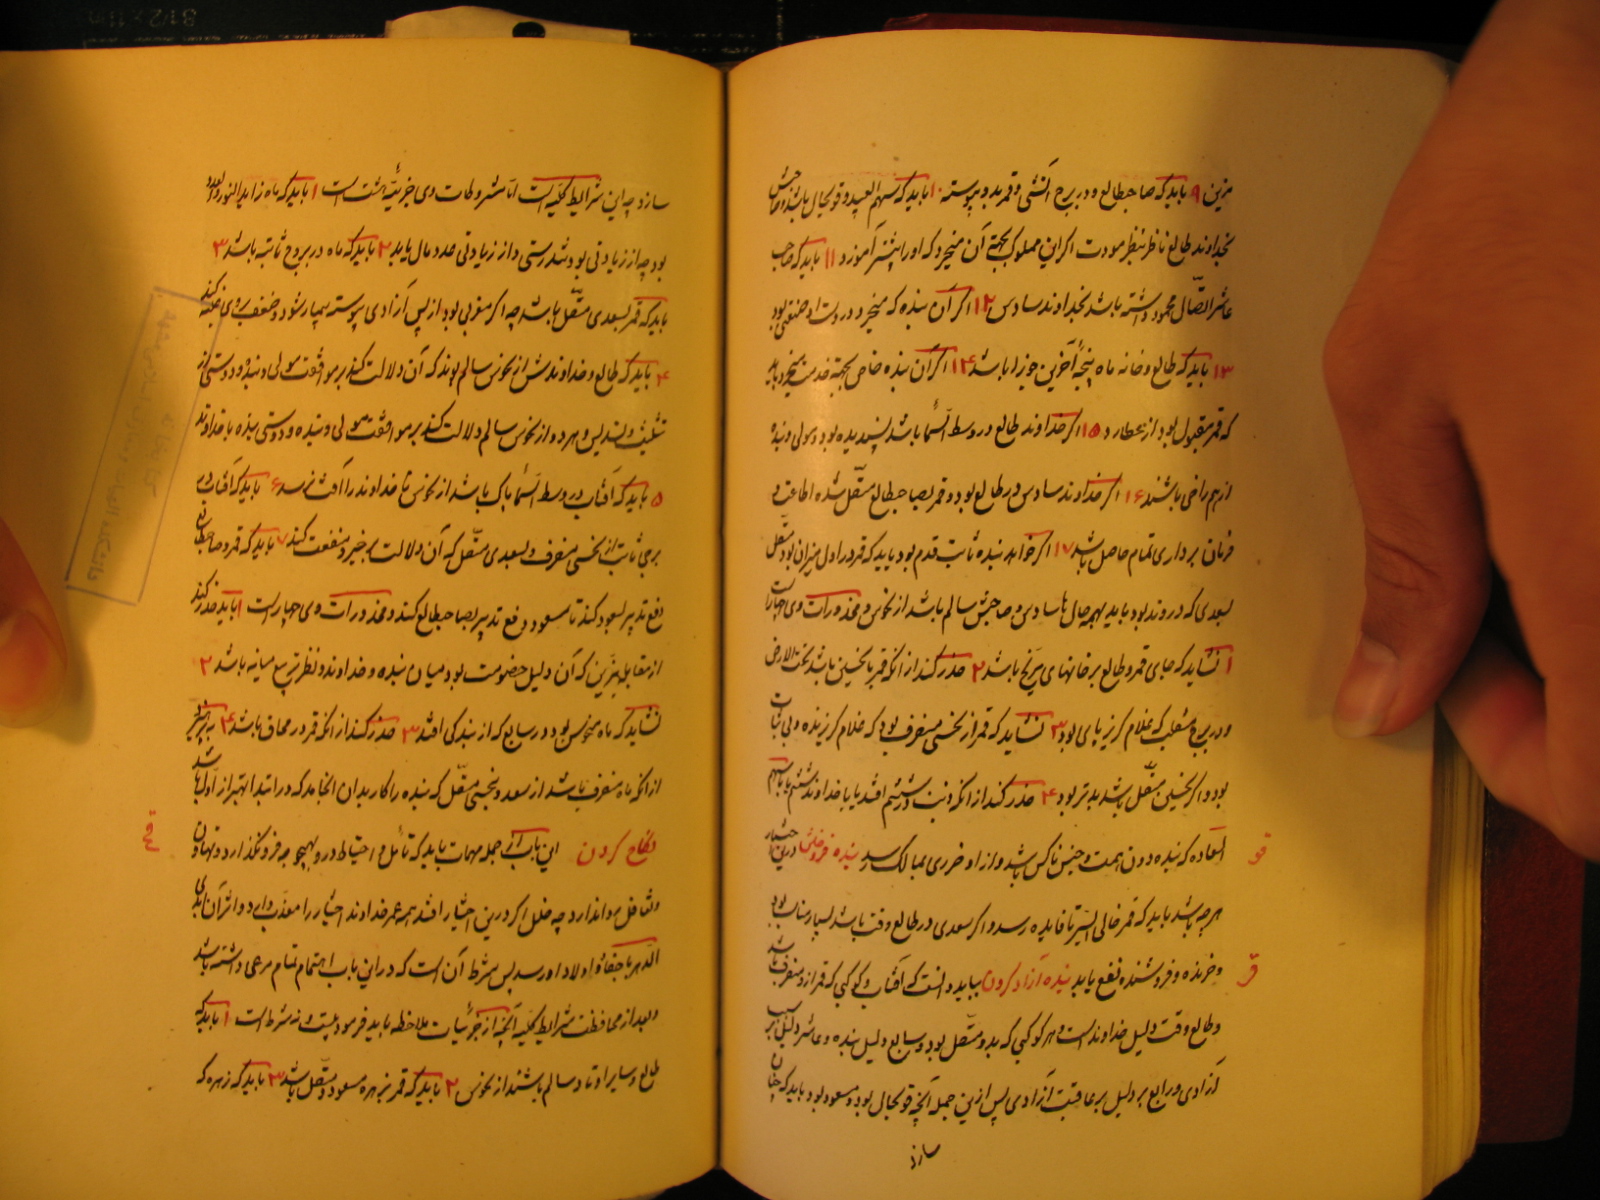 مزین ۹ باید که صاحب طالع در برج انثی و قمر بدو پیوسته ۱۰ باید که سهم العبید قوی حال باشد و صاحبش
بخداوند طالع ناظر بنظر مودت اگر این مملوک بجهت آن میخرد که او را پیشتر آموزد ۱۱ باید که صاحب
عاشر اتصال محمود داشته باشد بخداوند سادس ۱۲ اگر آن بنده که میخرد در دست او صنعتی بود
۱۳ باید که طالع و خانه ماه نیمه آخرین جوزا باشد ۱۴ اگر آن بنده خاص بجهة خدمت میخرد باید
که قمر مقبول بود از عطارد ۱۵ اگر خداوند طالع در وسط السما باشد پسندیده بود و مولی و بنده
از هم راضی باشند ۱۶ اگر خداوند سادس در طالع بود و قمر بصاحب طالع متصل شده اطاعت و
فرمان برداری تمام حاصل باشد ۱۷ اگر خواهد بنده ثابت قدم بود باید که قمر در اول میزان بود متصل
بسعدی که در وتد بود باید بهمه حال ها سادس و صاحبش سالم باشد از نحوس و محذورات وی چهار است
۱ نشاید که جای قمر و طالع برخانهای مریخ باشد ۲ حذر کند از انکه قمر با نحسین باشد تحت الارض
و در برج منقلب که غلام گریز پای بود ۳ نشاید که قمر از نحسی منصرف بود که غلام گریزنده و بی ثبات
بود و اگر بنحسین متصل باشد بدتر بود ۴ حذر کند از انکه ذنب در ششم افتد یا با خداوند ششم یا با سهم
السعاده که بنده دون همت و خسیس ناکس باشد و از او ضرری بمالک رسد بنده فروختن درین اختیار
قو
هرچه باشد باید که قمر خالی السیر تا فایده رسد و اگر سعدی در طالع وقت باشد بسیار مناسب بود
و خرنده و فروشنده نفع یابد بنده آزاد کردن بباید دانست که آفتاب و کوکبی که قمر از و منصرف باشد
قز
و طالع وقت دلیل خداوند است و هر کوکبی که بدو متصل بود و سابع دلیل بنده و عاشر دلیل بر سبب
آزادی و رابع بر دلیل بر عاقبت آزادی پس ازین جمله آنچه قوی حال بود و مسعود بود باید که چنان
سازد
سازد چه این شرایط کلیه است اما مشروطات وی جزئیه هشت است ۱ باید که ماه زاید النور و العدد
بود چه از زیادتی بود تندرستی و از زیادتی عدد مال یابد ۲ باید که ماه در بروج ثابته باشد ۳
باید که قمر بسعدی متصل باشد چه اگر مغربی بود از پس آزادی پیوسته بیمار شود و ضعف بروی غلبه کند
۴ باید که طالع و خداوندش از نحوس سالم بوند که آن دلالت کند بر موافقت مولی و بنده و دوستی از
تثلیث و تسدیس و هر دو از نحوس سالم دلالت کند بر موافقت مولی و بنده و دوستی بنده با خداوند
۵ باید که آفتاب در وسط السما پاک باشد از نحوس تا خداوند را آفت نرسد ۶ باید که آفتاب در
برجی ثابت از نحسی منصرف و بسعدی متصل که آن دلالت بر خیر و منفعت کند ۷ باید که قمر و صاحب طالع
دفع تدبیر بسعود کند تا مسعود دفع تدبیر بصاحب طالع کند و محذورات وی چهار است ۱ باید حذر کند
از مقابله نیرین که آن دلیل خصومت بود میان بنده و خداوند و نظر تربیع میانه باشد ۲
نشاید که ماه منحوس بود در سابع که از بندگی افتد ۳ حذر کند از انکه قمر در محاق باشد ۴
از انکه ماه منصرف باشد از سعد و بنحسی متصل که بنده را کار بدان انجامد که در ابتدا بهتر از آن باشد
نکاح کردن این باب از جمله مهمات باید که تأمل و احتیاط در و بهیچ وجه فرو نگذارد و تهاون
قح
و تغافل روا ندارد چه خلل اگر درین اختیار افتد همه عمر خداوند اختیار را معذب دارد و اثر آن ابد
الدهر با حفاد و اولاد او رسد پس شرط آن است که در این باب اهتمام تمام مرعی داشته باشد
و بعد از محافظت شرایط کلیه آنچه از جزئیات ملاحظه باید فرمود بیست و نه شرط است ۱ باید که
طالع و سایر اوتاد سالم باشند از نحوس ۲ باید که قمر بزهره مسعود و متصل باشد ۳ باید که زهره که